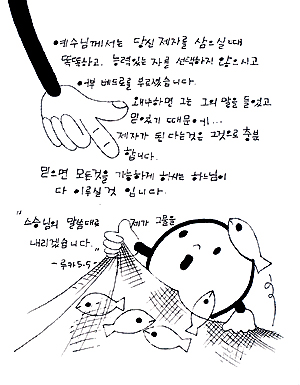 •예수님께서는 당신 제자를 삼으실 때
똑똑하고, 능력있는 자를 선택하지 않으시고
어부 베드로를 부르셨습니다.
왜냐하면 그는 그의 말을 들었고
믿었기 때문에...
제자가 된다는것은 그것으로 충분
합니다.
믿으면 모든것을 가능하게 하시는 하느님이
다 이루실 것 입니다.
"스승님의 말씀대로 제가 그물을
내리겠습니다."
-루카5.5-